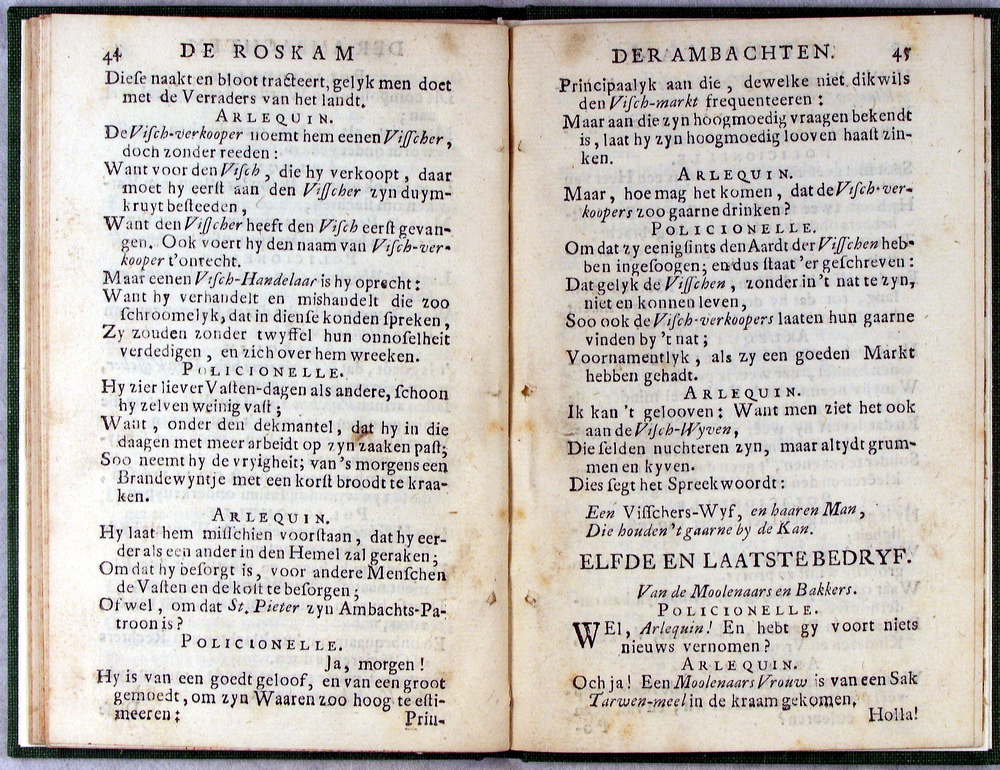 44 DE ROSKAM
Dieſe naakt en bloot tracteert, gelyk men doet
met de Verraders van het landt.
ARLEQUIN.
De Viſch-verkooper noemt hem eenen Viſſcher,
doch zonder reeden:
Want voor den Viſch, die hy verkoopt, daar
moet hy eerſt aan den Viſſcher zyn duym-
kruyt beſteeden,
Want den Viſſcher heeft den Viſch eerſt gevan-
gen. Ook voert hy den naam van Viſch-ver-
kooper t'onrecht.
Maar eenen Viſch-Handelaar is hy oprecht:
Want hy verhandelt en mishandelt die zoo
ſchroomelyk, dat in dienſe konden ſpreken,
Zy zouden zonder twyffel hun onnoſelheit
verdedigen, en zich over hem wreeken.
POLICIONELLE.
Hy zier liever Vaſten-dagen als andere, ſchoon
hy zelven weinig vaſt;
Want, onder den dekmantel, dat hy in die
daagen met meer arbeidt op zyn zaaken paſt;
Soo neemt hy de vryigheit; van 's morgens een
Brandewyntje met een korſt broodt te kraa-
ken.
ARLEQUIN.
Hy laat hem miſſchien voorſtaan, dat hy eer-
der als een ander in den Hemel zal geraken;
Om dat hy beſorgt is, voor andere Menſchen
de Vaſten en de koſt te beſorgen;
Of wel, om dat St. Pieter zyn Ambachts-Pa-
troon is?
POLICIONELLE.
Ja, morgen!
Hy is van een goedt geloof, en van een groot
gemoedt, om zyn Waaren zoo hoog te eſti-
meeren:
Prin-
DER AMBACHTEN. 45
Principaalyk aan die, dewelke niet dikwils
den Viſch-markt frequenteeren:
Maar aan die zyn hoogmoedig vraagen bekendt
is, laat hy zyn hoogmoedig looven haaſt zin-
ken.
ARLEQUIN.
Maar, hoe mag het komen, dat de Viſch-ver-
koopers zoo gaarne drinken?
POLICIONELLE.
Om dat zy eenigſints den Aardt der Viſſchen heb-
ben ingeſoogen; en dus ſtaat 'er geſchreven:
Dat gelyk de Viſſchen, zonder in 't nat te zyn,
niet en konnen leven,
Soo ook de Viſch-verkoopers laaten hun gaarne
vinden by 't nat;
Voornamentlyk, als zy een goeden Markt
hebben gehadt.
ARLEQUIN.
Ik kan 't gelooven: Want men ziet het ook
aan de Viſch-Wyven,
Die ſelden nuchteren zyn, maar altydt grum-
men en kyven.
Dies ſegt het Spreekwoordt:
Een Viſſchers-Wyf, en haaren Man,
Die houden 't gaarne by de Kan.
ELFDE EN LAATSTE BEDRYF.
Van de Moolenaars en Bakkers.
POLICIONELLE.
WEl, Arlequin! En hebt gy voort niets
nieuws vernomen?
ARLEQUIN.
Och ja! Een Moolenaars Vrouw is van een Sak
Tarwen-meel in de kraam gekomen,
Holla!